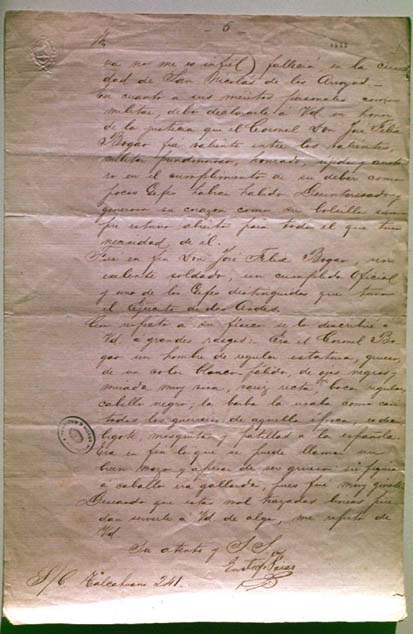 - 6 -
ria no me es infiel) falleció en la ciu
dad de San Nicolás de los Arroyos.-
En cuanto á sus méritos personales como
militar, debo declararle á Vd en honor
de la justicia que el Coronel Don José Felix
Bogao fué valiente entre los valientes,
militar pundonoroso, honrado, rígido y auste
ro en el cumplimiento de su deber como
pocos Gefes habrá habido. Desinteresado y
generoso su corazon como su bolsillo siem
pre estuvo abierto para todo el que tuvo
necesidad de él.
Fué en fin Don José Felix Bogao, un
valiente soldado, un cumplido Oficial
y uno de los Gefes distinguidos que tuvo
el Ejército de los Andes.
Con respecto á su físico se lo describiré á
Vd. á grandes rasgos: Era el Coronel Bo
gao un hombre de regular estatura, grueso,
de un color blanco pálido, de ojos negros y
mirada muy viva, nariz recta, boca regular,
cabello negro, la barba la usaba como casi
todos los guerreros de aquella época, es decir
bigote, mosquita y patillas á la española.
Era en fin lo que se puede llamar un
buen mozo y apesar de ser grueso su figura
á caballo era gallarda, pues fué muy ginete.
Deseando que estas mal trazadas líneas pue
dan servirle á Vd de algo, me repito de
Vd
Su atento y S. S.
S/C Talcahuano 241.